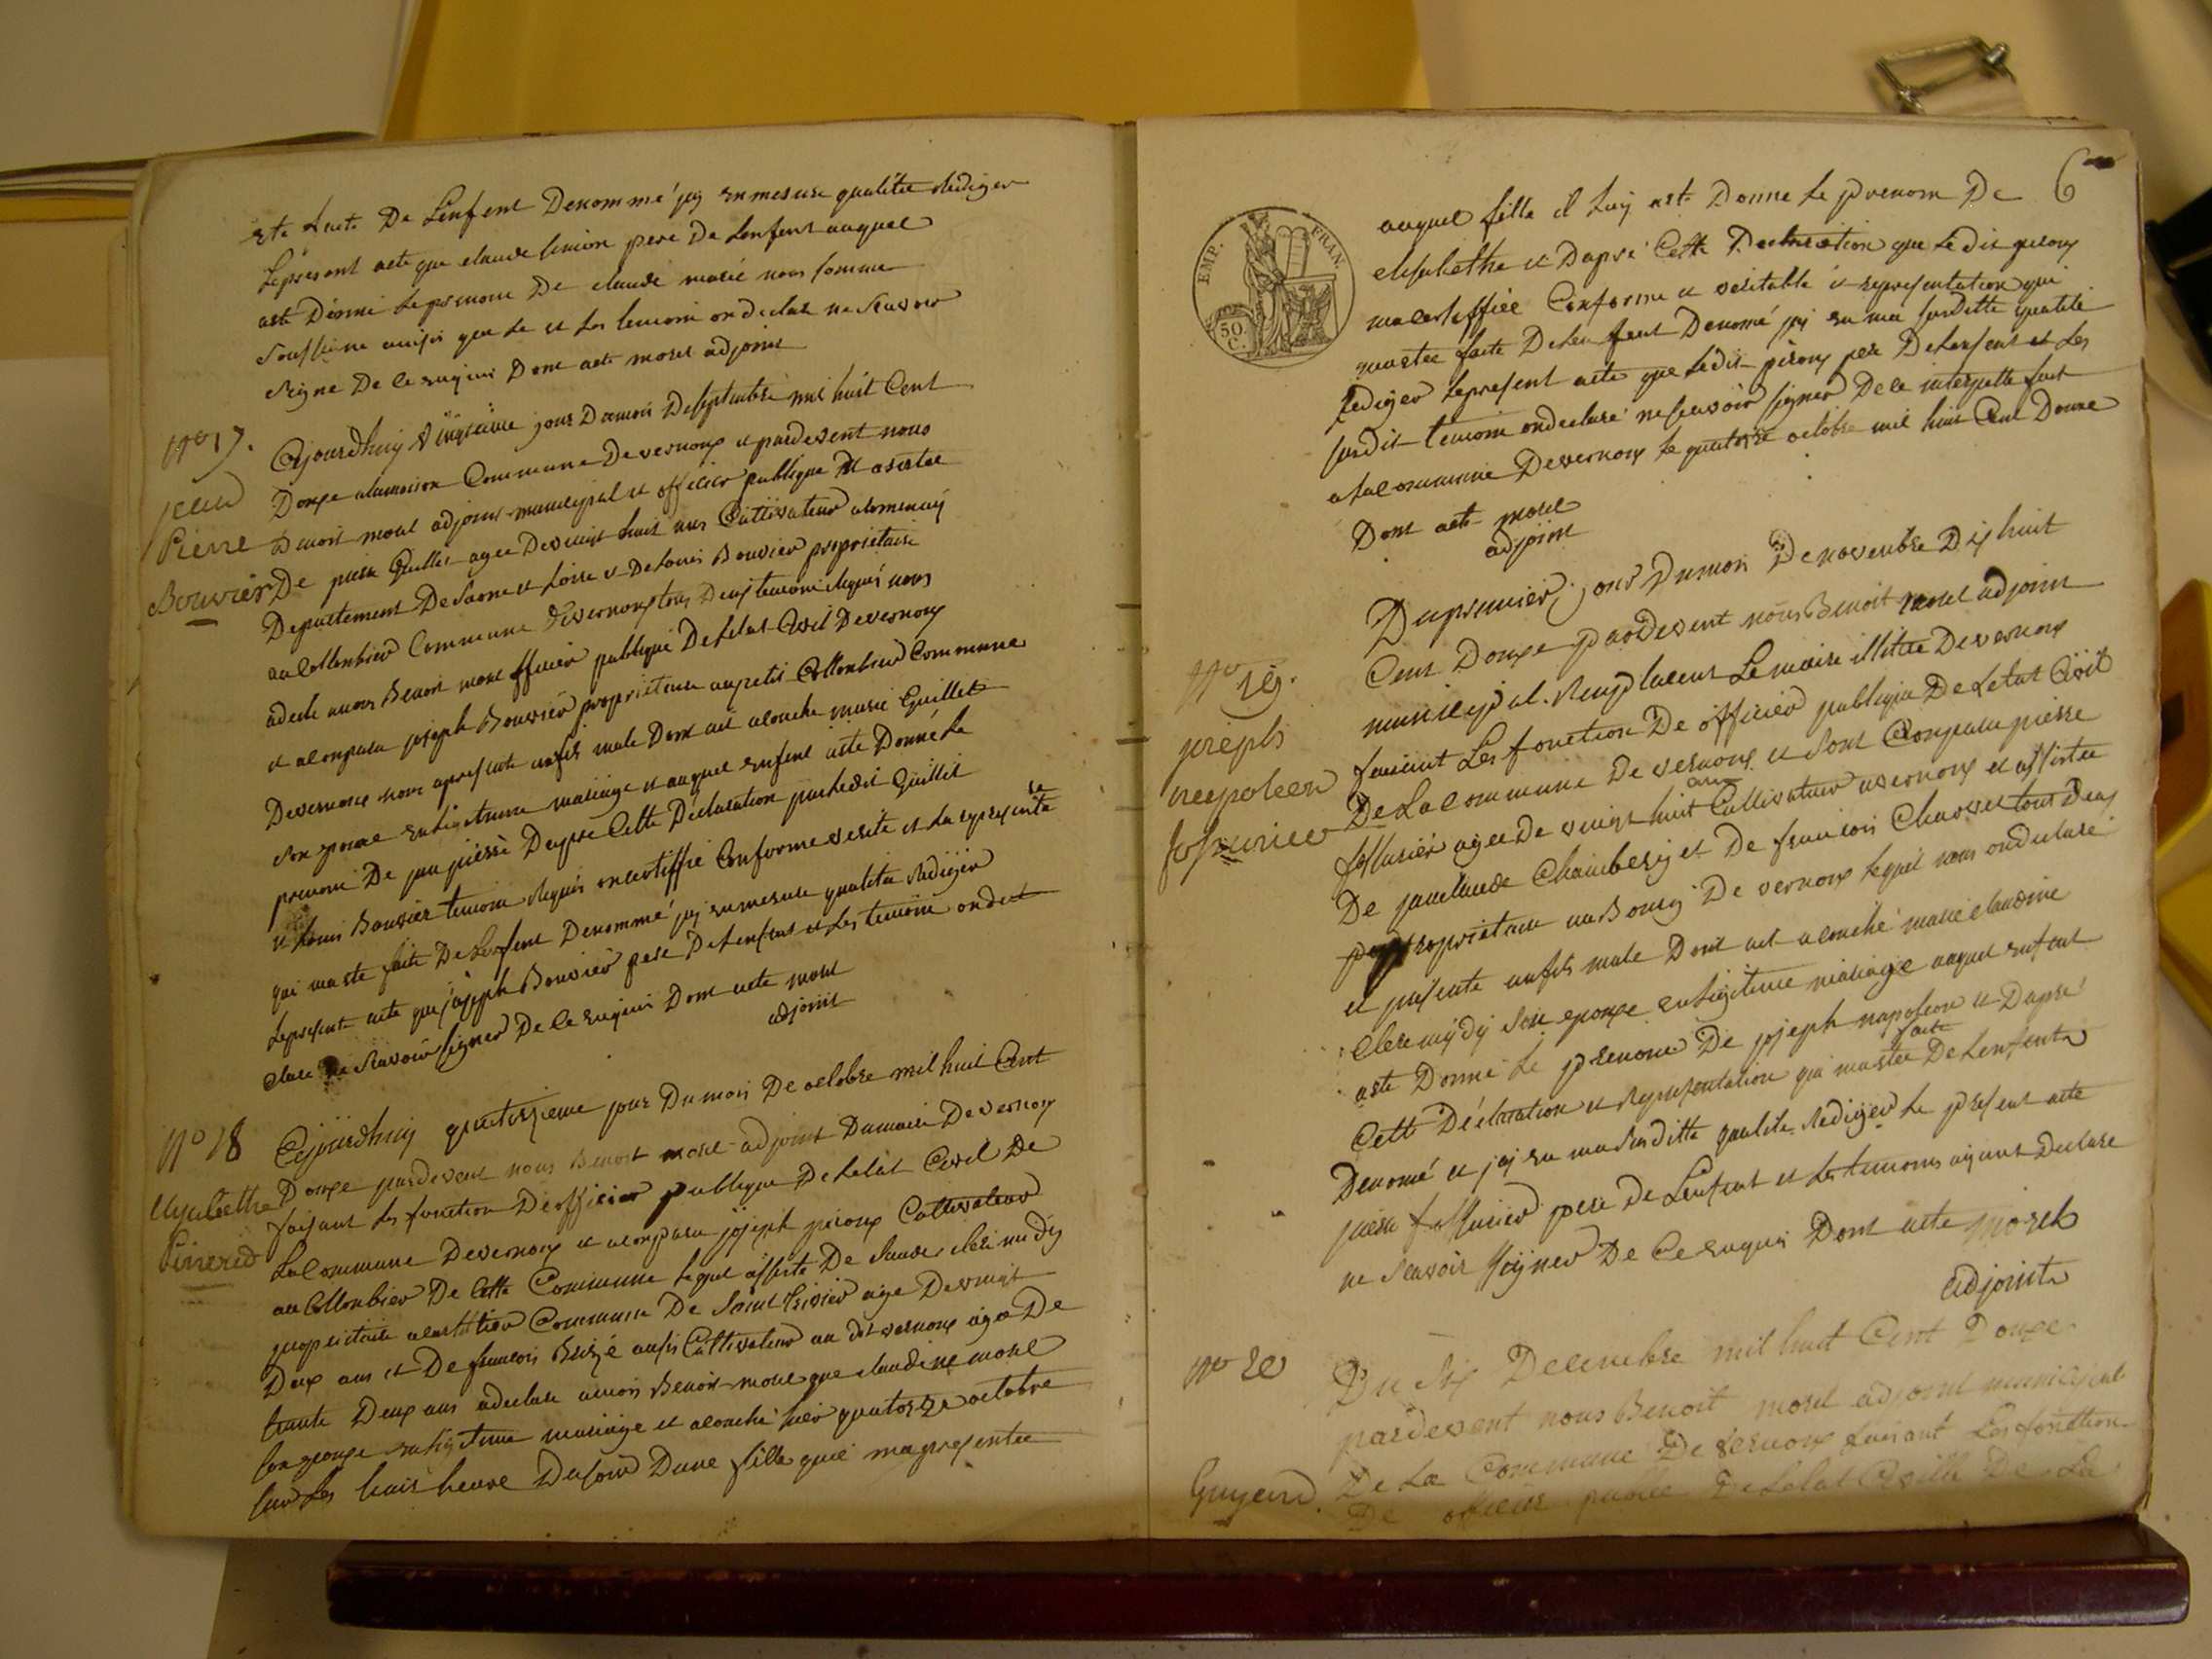 este faite De Lenfent Denommé jay en mesure qualitée Rediger
Lepresent acte que claude pere De Lenfent auquel
aste Donné Leprenom De claude marié nous somme
Soussigne ainsin que Le et les temoin on declare ne Scavoir
Signe De ce enquis Dont acte morel adjoint
N° 17.
jean
Pierre
Bouvier
Cejourdhuy vingtieme jour Dumois De septembre mil huit Cent
Douze alamaison Commune Devernoux et pardevent nous
Benoit morel adjoint municipal et officier publique asistée
De pierre Guillet agee Devingt huit ans Cultivateur aromenay
Departement De Saone et Loire et De Louis Bouvier propriétaire
au Collonbier Commune Devernoux tous Deux temoin Requis nous
adecle anous Benoit morel officier publique De Letat Civil Devernoux
et aconparu joseph Bouvier propriétaire aupetit Collonbier Commune
Devernoux nous apresente unfils male Dont ait acouche marie Guillet
Son epouse enligitime mariage et auquel enfent aste Donné Le
prenom De jean pierre Dapre Cette Déclaration parledit Guillet
et Louis Bouvier temoin Requis on certiffié Conforme verite et La represente
qui maste faite De Lenfent Denommé jay enmesure qualitée Rediger
Lepresent acte que joseph Bouvier pere De Lenfent et Les temoin on de
clare ne Scavoir signer De ce enquis Dont acte morel
adjoint
N° 18
Elyzabethe
Cejourdhuy quatorzieme jour Dumois De octobre mil huit Cent
Douze pardevent nous Benoit morel adjoint Dumaire Devernoux
faisant les fonction De officier publique De Letat Civil De
La Commune Devernoux et aconparu joseph piroux Cultivateur
au Collonbier De Cette Commune lequel assiste De Claude cleri midy
propriétaire Commune De Saint Trivier age Devingt
Deux ans et De francois aussi Cultivateur au dit vernoux age De
trante Deux ans adeclare anous Benoit morel que claudine morel
son epouse enligitime mariage et acouché hier quatorze octobre
sur Les huit heure Dusoir Dune fille quil mapresentée
6
EMP. FRAN.
50 C.
auquel fille il Luy est Donne Le prenom De
elisabethe et Dapré Cette Declaration que Ledit piroux
macertiffiée Conforme et veritable et representation qui
mastee faite De Lenfent Denomé jay en ma susditte qualité
Rediger Lepresent acte que Ledit piroux pere De Lenfent et Les
susdit temoin ondeclaré nescavoir signer De ce interpelle fait
a La commune Devernoux Le quatorze octobre mil huit Cent Douze
Dont acte morel
adjoint
N° 19.
joseph
napoleon
Dupremier jour Dumois De novembre Dix huit
Cent Douze pardevent nous Benoit morel adjoint
municipal. Remplacent Le maire Devernoux
faisant Les fonction De officier publique De Letat Civil
De La commune De vernoux et Sont Conparu pierre
agee De vingt huit ans Cultivateur avernoux et assistée
De jean claude Chambery et De francois Charvet tous Deux
propriétaire au Bourg De vernoux Lequel nous ondeclaré
et presente unfils male Dont ait acouché marie claudine
cleremydy Son epouze enligitime mariage auquel enfent
aste Donné Le prenom De jojeph napoleon et Dapré
Cette Déclaration et Representation qui mastee faite De Lenfent
Denomé et jay en ma susditte qualité Rediger Le present acte
pierre pere De Lenfent et Les temoins ayant Declare
ne Scavoir Signer De Ce enquis Dont acte Morel
adjoint
N° 20
Guyend.
Du Six Decembre mil huit Cent Douze
pardevent nous Benoit morel adjoint municipal
De La Commune De vernoux faisant Les fonction
De officier De Letat Civille De La